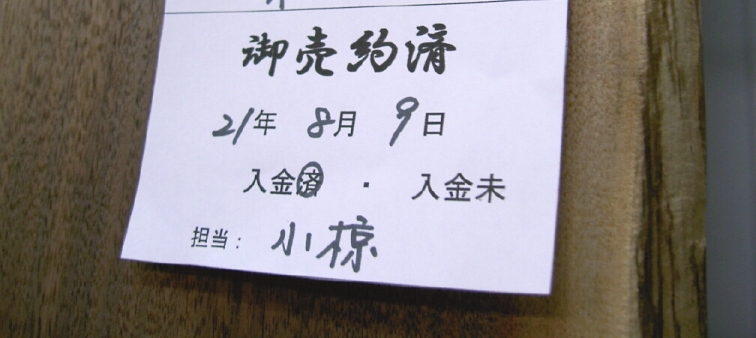 御売約済
21年 8月 9日
入金済 ・ 入金未
担当: 小椋